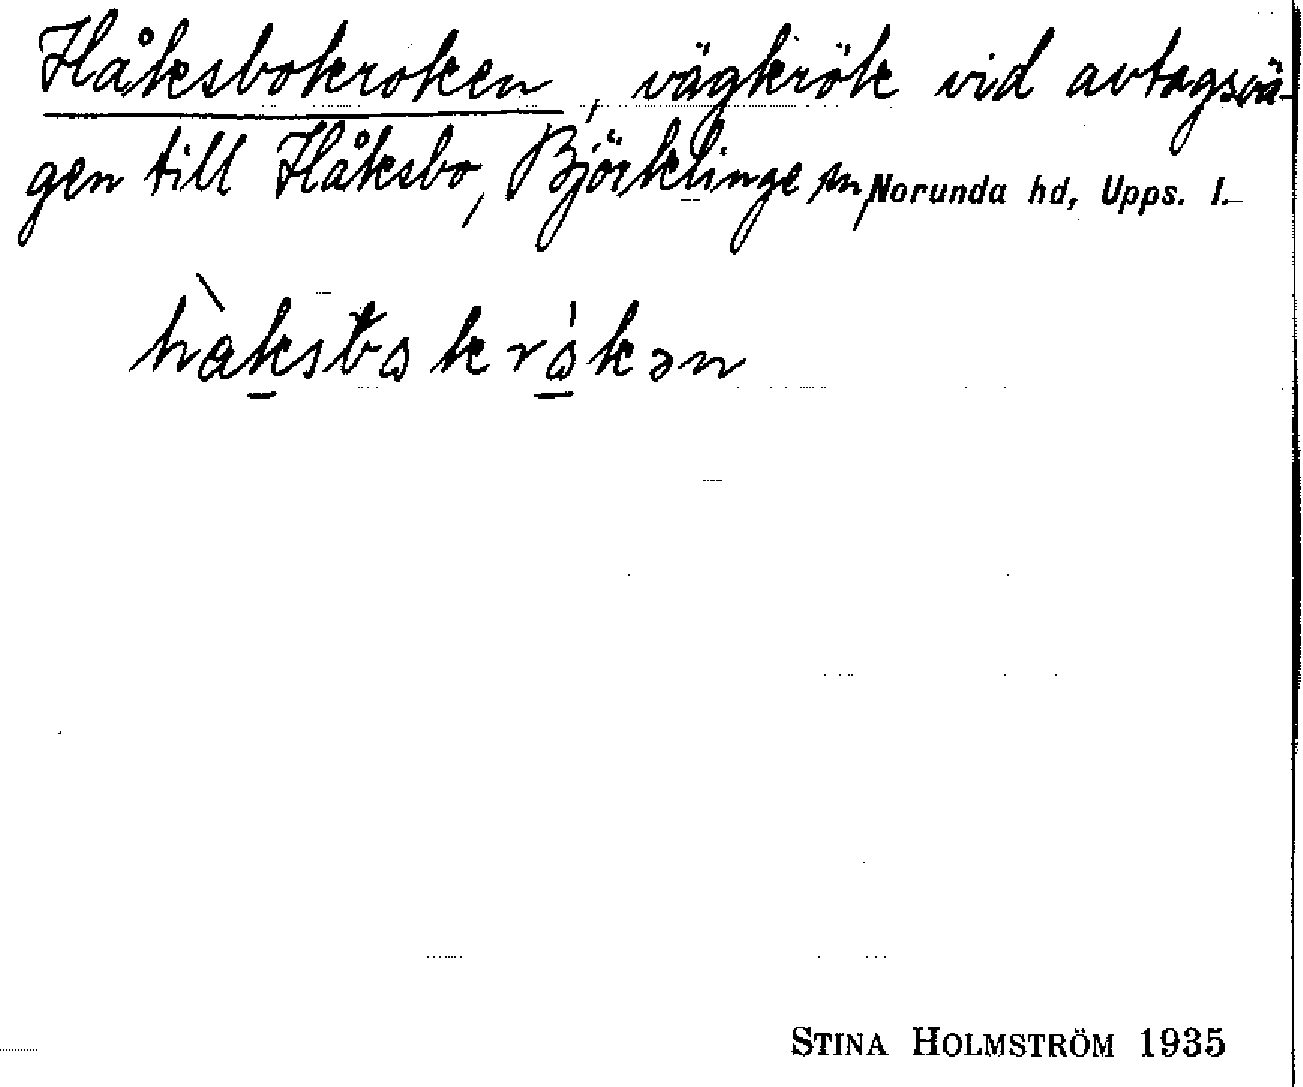 Håksbokroken, vägkrök vid avtagsvä-
gen till Håksbo, Björklinge sn, Norunda hd, Upps. l.
STINA HOLMSTRÖM 1935